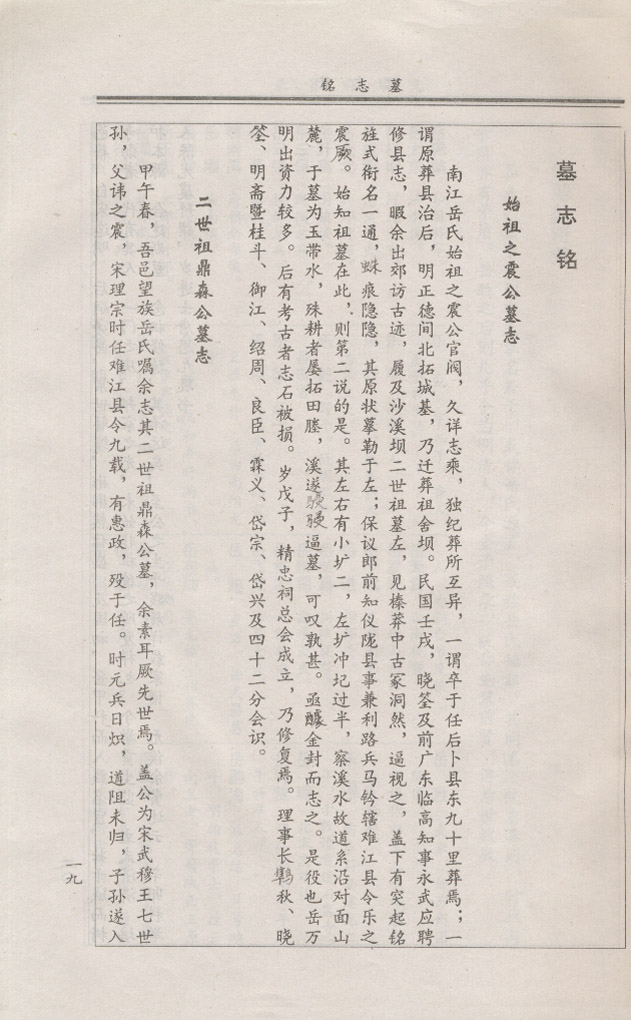 墓志铭
墓志铭
始祖之震公墓志
南江岳氏始祖之震公官阀，久详志乘，独纪葬所互异，一谓卒于任后卜县东九十里葬焉；一
谓原葬县治后，明正德间北拓城基，乃迁葬祖舍坝。民国壬戌，晓筌及前广东临高知事永武应聘
修县志，暇余出郊访古迹，履及沙溪坝二世祖墓左，见榛莽中古冢洞然，逼视之，盖下有突起铭
旌式衔名一通，蛛痕隐隐，其原状摹勒于左；保议郎前知仪陇县事兼利路兵马钤辖难江县令乐之
震厥。始知祖墓在此，则第二说的是。其左右有小圹二，左圹冲圮过半，察溪水故道系沿对面山
麓，于墓为玉带水，殊耕者屡拓田塍，溪遂骎骎逼墓，可叹孰甚。亟醵金封而志之。是役也岳万
明出资力较多。后有考古者志石被损。岁戊子，精忠祠总会成立，乃修复焉。理事长鹑秋、晓
筌、明斋暨桂斗、御江、绍周、良臣、霖义、岱宗、岱兴及四十二分会识。
二世祖鼎森公墓志
甲午春，吾邑望族岳氏嘱余志其二世祖鼎森公墓，余素耳厥先世焉。盖公为宋武穆王七世
孙，父讳之震，宋理宗时任难江县令九载，有惠政，殁于任。时元兵日炽，道阻未归，子孙遂入
一九